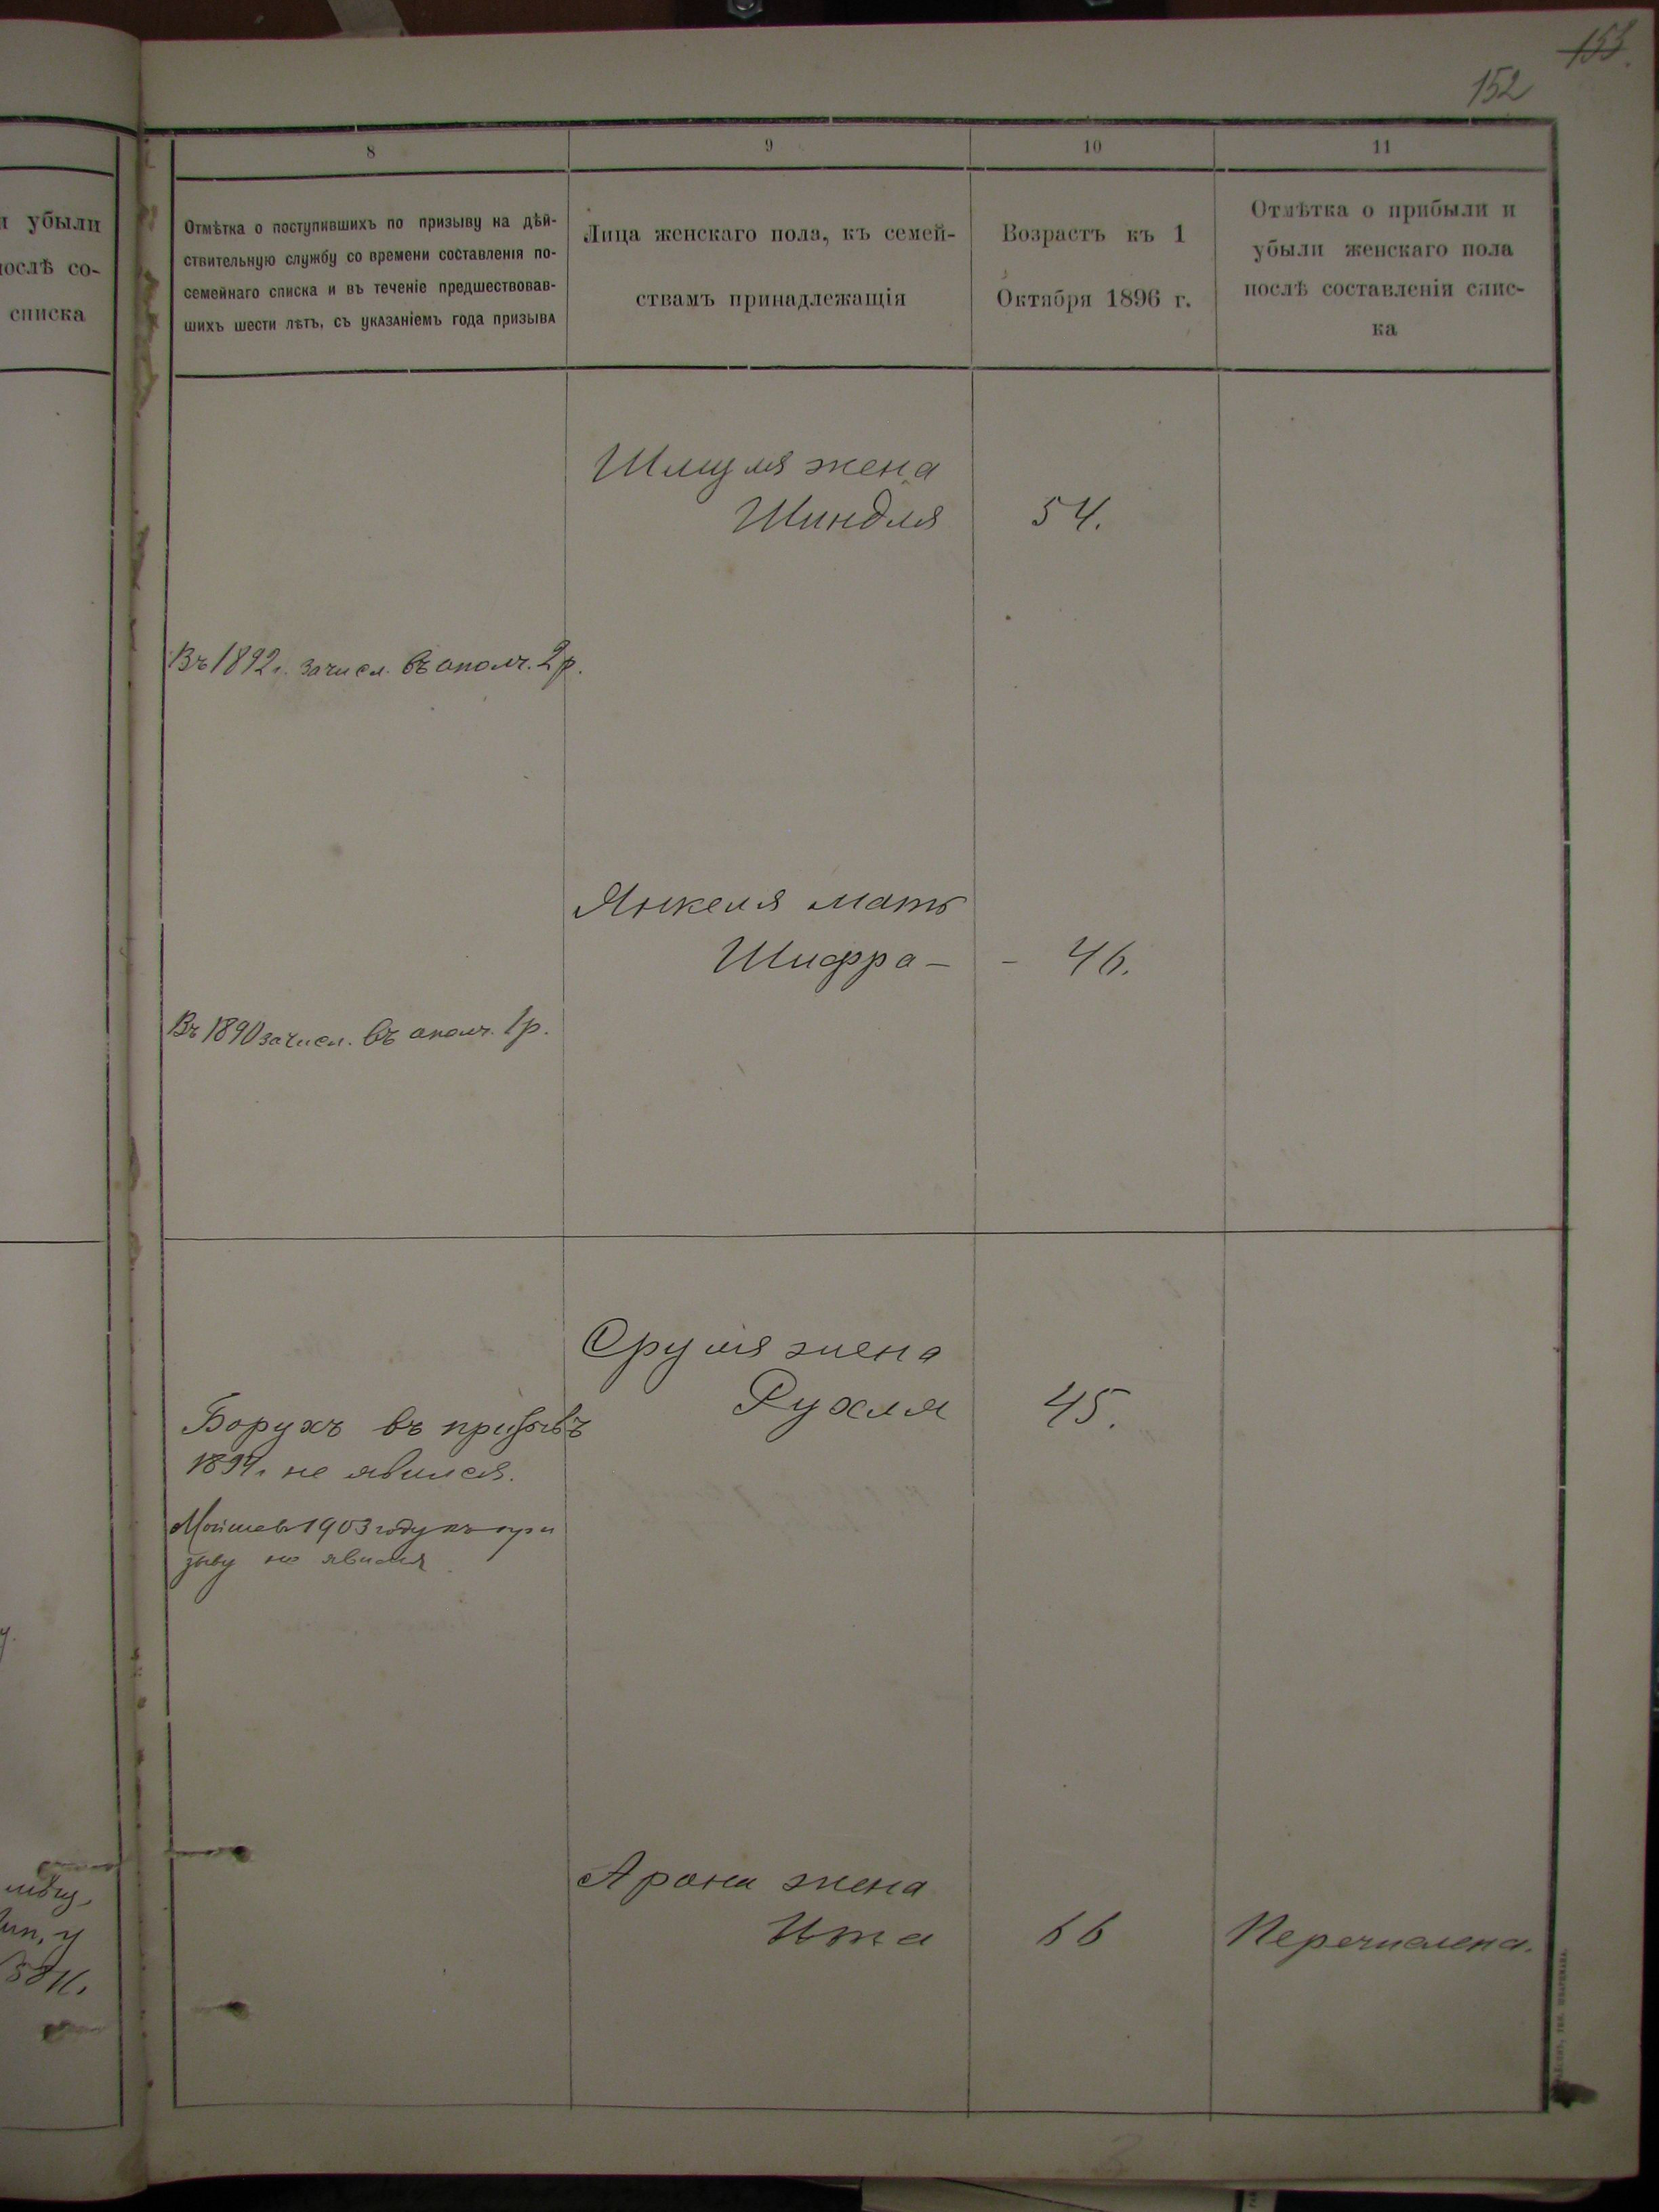 153.
152
8
9
10
11
и убыли
послѣ со-
списка
Отмѣтка о поступившихъ по призыву на дѣй-
ствительную службу со времени составленія по-
семейнаго списка и въ теченіе предшествовав-
шихъ шести лѣтъ, съ указаніемъ года призыва
Лица женскаго пола, къ семей-
ствамъ принадлежащія
Возрастъ къ 1
Октября 1896 г.
Отмѣтка о прибыли и
убыли женскаго пола
послѣ составленія спис-
ка
Шмуля жена
Шиндля
54.
Въ 1892 г. зачисл. въ ополч. 2 р.
Янкеля мать
Шифра –
– 46.
Въ 1890 зачисл. въ ополч. 1 р.
Сруля жена
Рухля
45.
Борухъ въ призывъ
1894 г. не явился.
Мойше въ 1903 году къ при
зыву не явился
Арона жена
Ита
66
Перечислена.